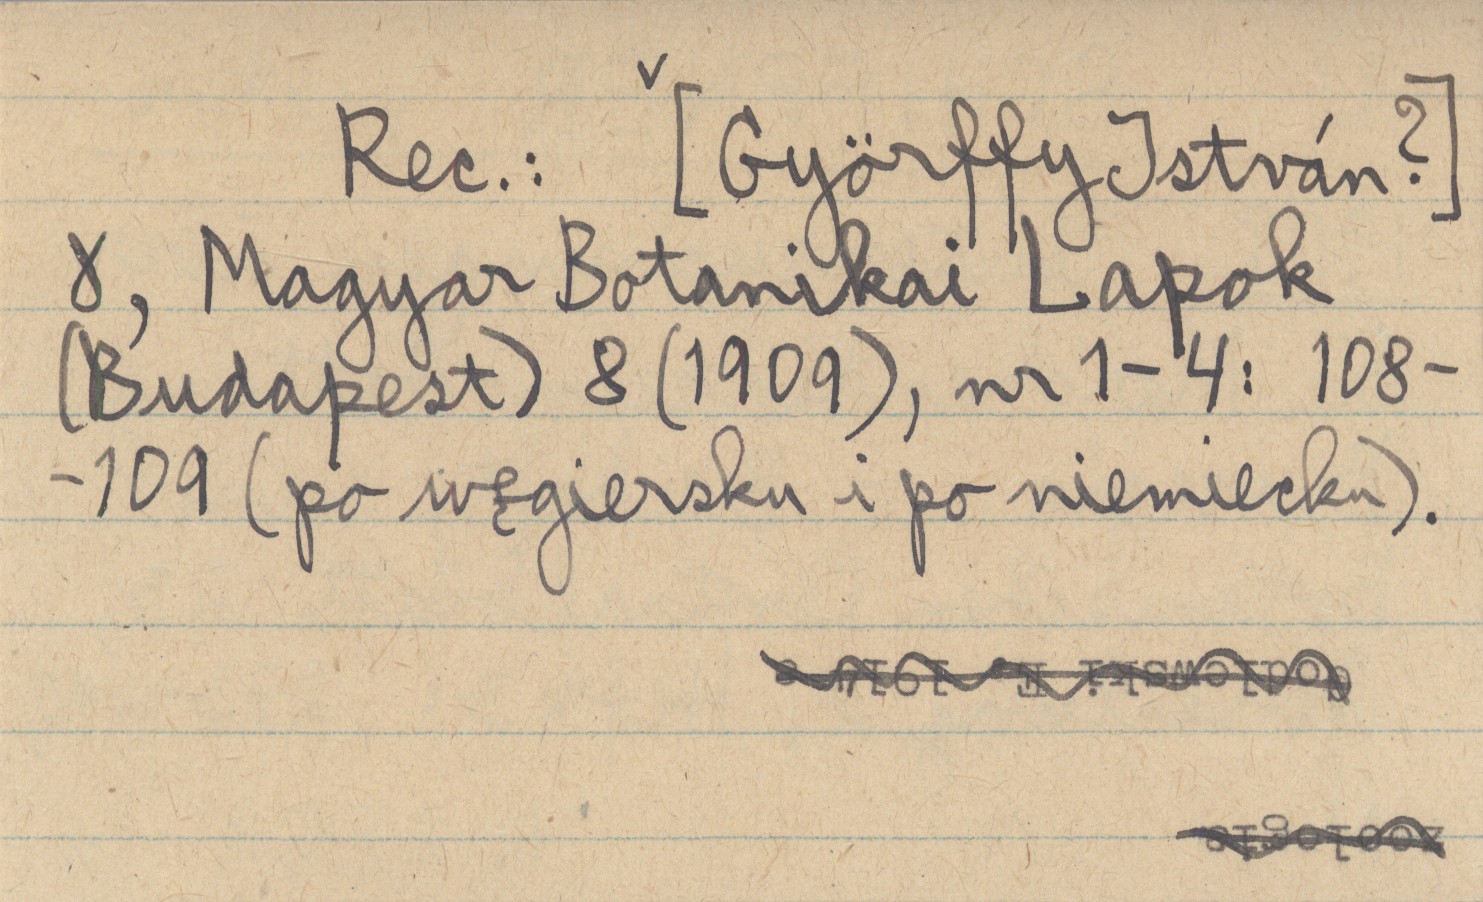 Rec.: [Györffy István?]
γ, Magyar Botanikai Lapok
(Budapest) 8 (1909), nr 1-4: 108-
-109 (po węgiersku i po niemiecku).
zoologia